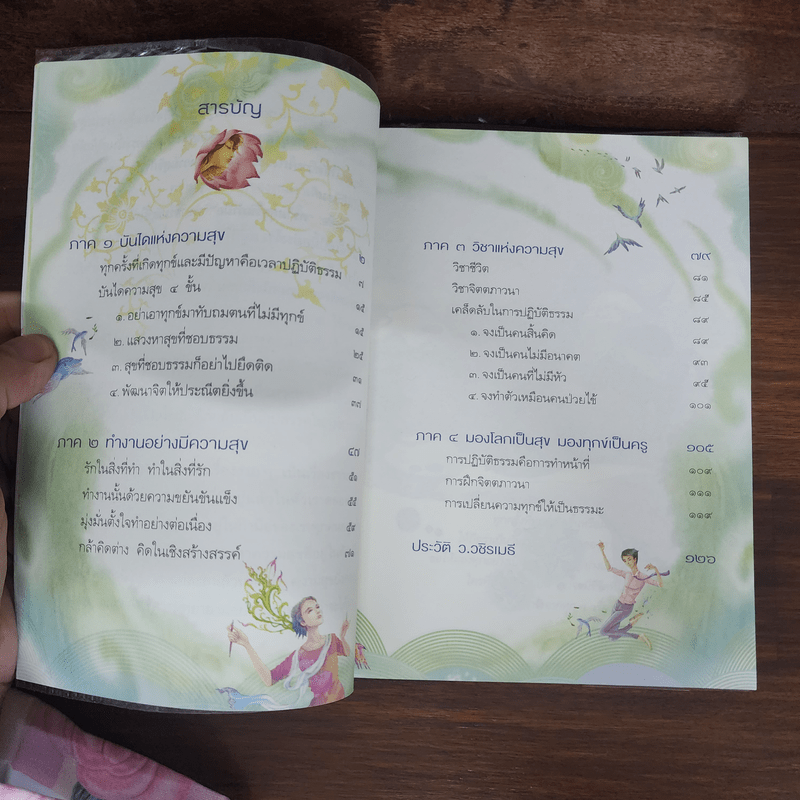 สารบัญ
ภาค ๑ บันไดแห่งความสุข ๒
ทุกครั้งที่เกิดทุกข์และมีปัญหาคือเวลาปฏิบัติธรรม ๗
บันไดความสุข ๔ ขั้น ๑๕
๑. อย่าเอาทุกข์มาทับถมตนที่ไม่มีทุกข์ ๑๕
๒. แสวงหาสุขที่ชอบธรรม ๒๕
๓. สุขที่ชอบธรรมก็อย่าไปยึดติด ๓๑
๔. พัฒนาจิตให้ประณีตยิ่งขึ้น ๓๗
ภาค ๒ ทำงานอย่างมีความสุข ๔๗
รักในสิ่งที่ทำ ทำในสิ่งที่รัก ๕๑
ทำงานนั้นด้วยความขยันขันแข็ง ๕๕
มุ่งมั่นตั้งใจทำอย่างต่อเนื่อง ๕๙
กล้าคิดต่าง คิดในเชิงสร้างสรรค์ ๗๑
ภาค ๓ วิชาแห่งความสุข ๗๙
วิชาชีวิต ๘๑
วิชาจิตตภาวนา ๘๕
เคล็ดลับในการปฏิบัติธรรม ๘๙
๑. จงเป็นคนสิ้นคิด ๘๙
๒. จงเป็นคนไม่มีอนาคต ๙๓
๓. จงเป็นคนที่ไม่มีหัว ๙๕
๔. จงทำตัวเหมือนคนป่วยไข้ ๑๐๑
ภาค ๔ มองโลกเป็นสุข มองทุกข์เป็นครู ๑๐๕
การปฏิบัติธรรมคือการทำหน้าที่ ๑๐๙
การฝึกจิตตภาวนา ๑๑๑
การเปลี่ยนความทุกข์ให้เป็นธรรมะ ๑๑๙
ประวัติ ว.วชิรเมธี ๑๒๖